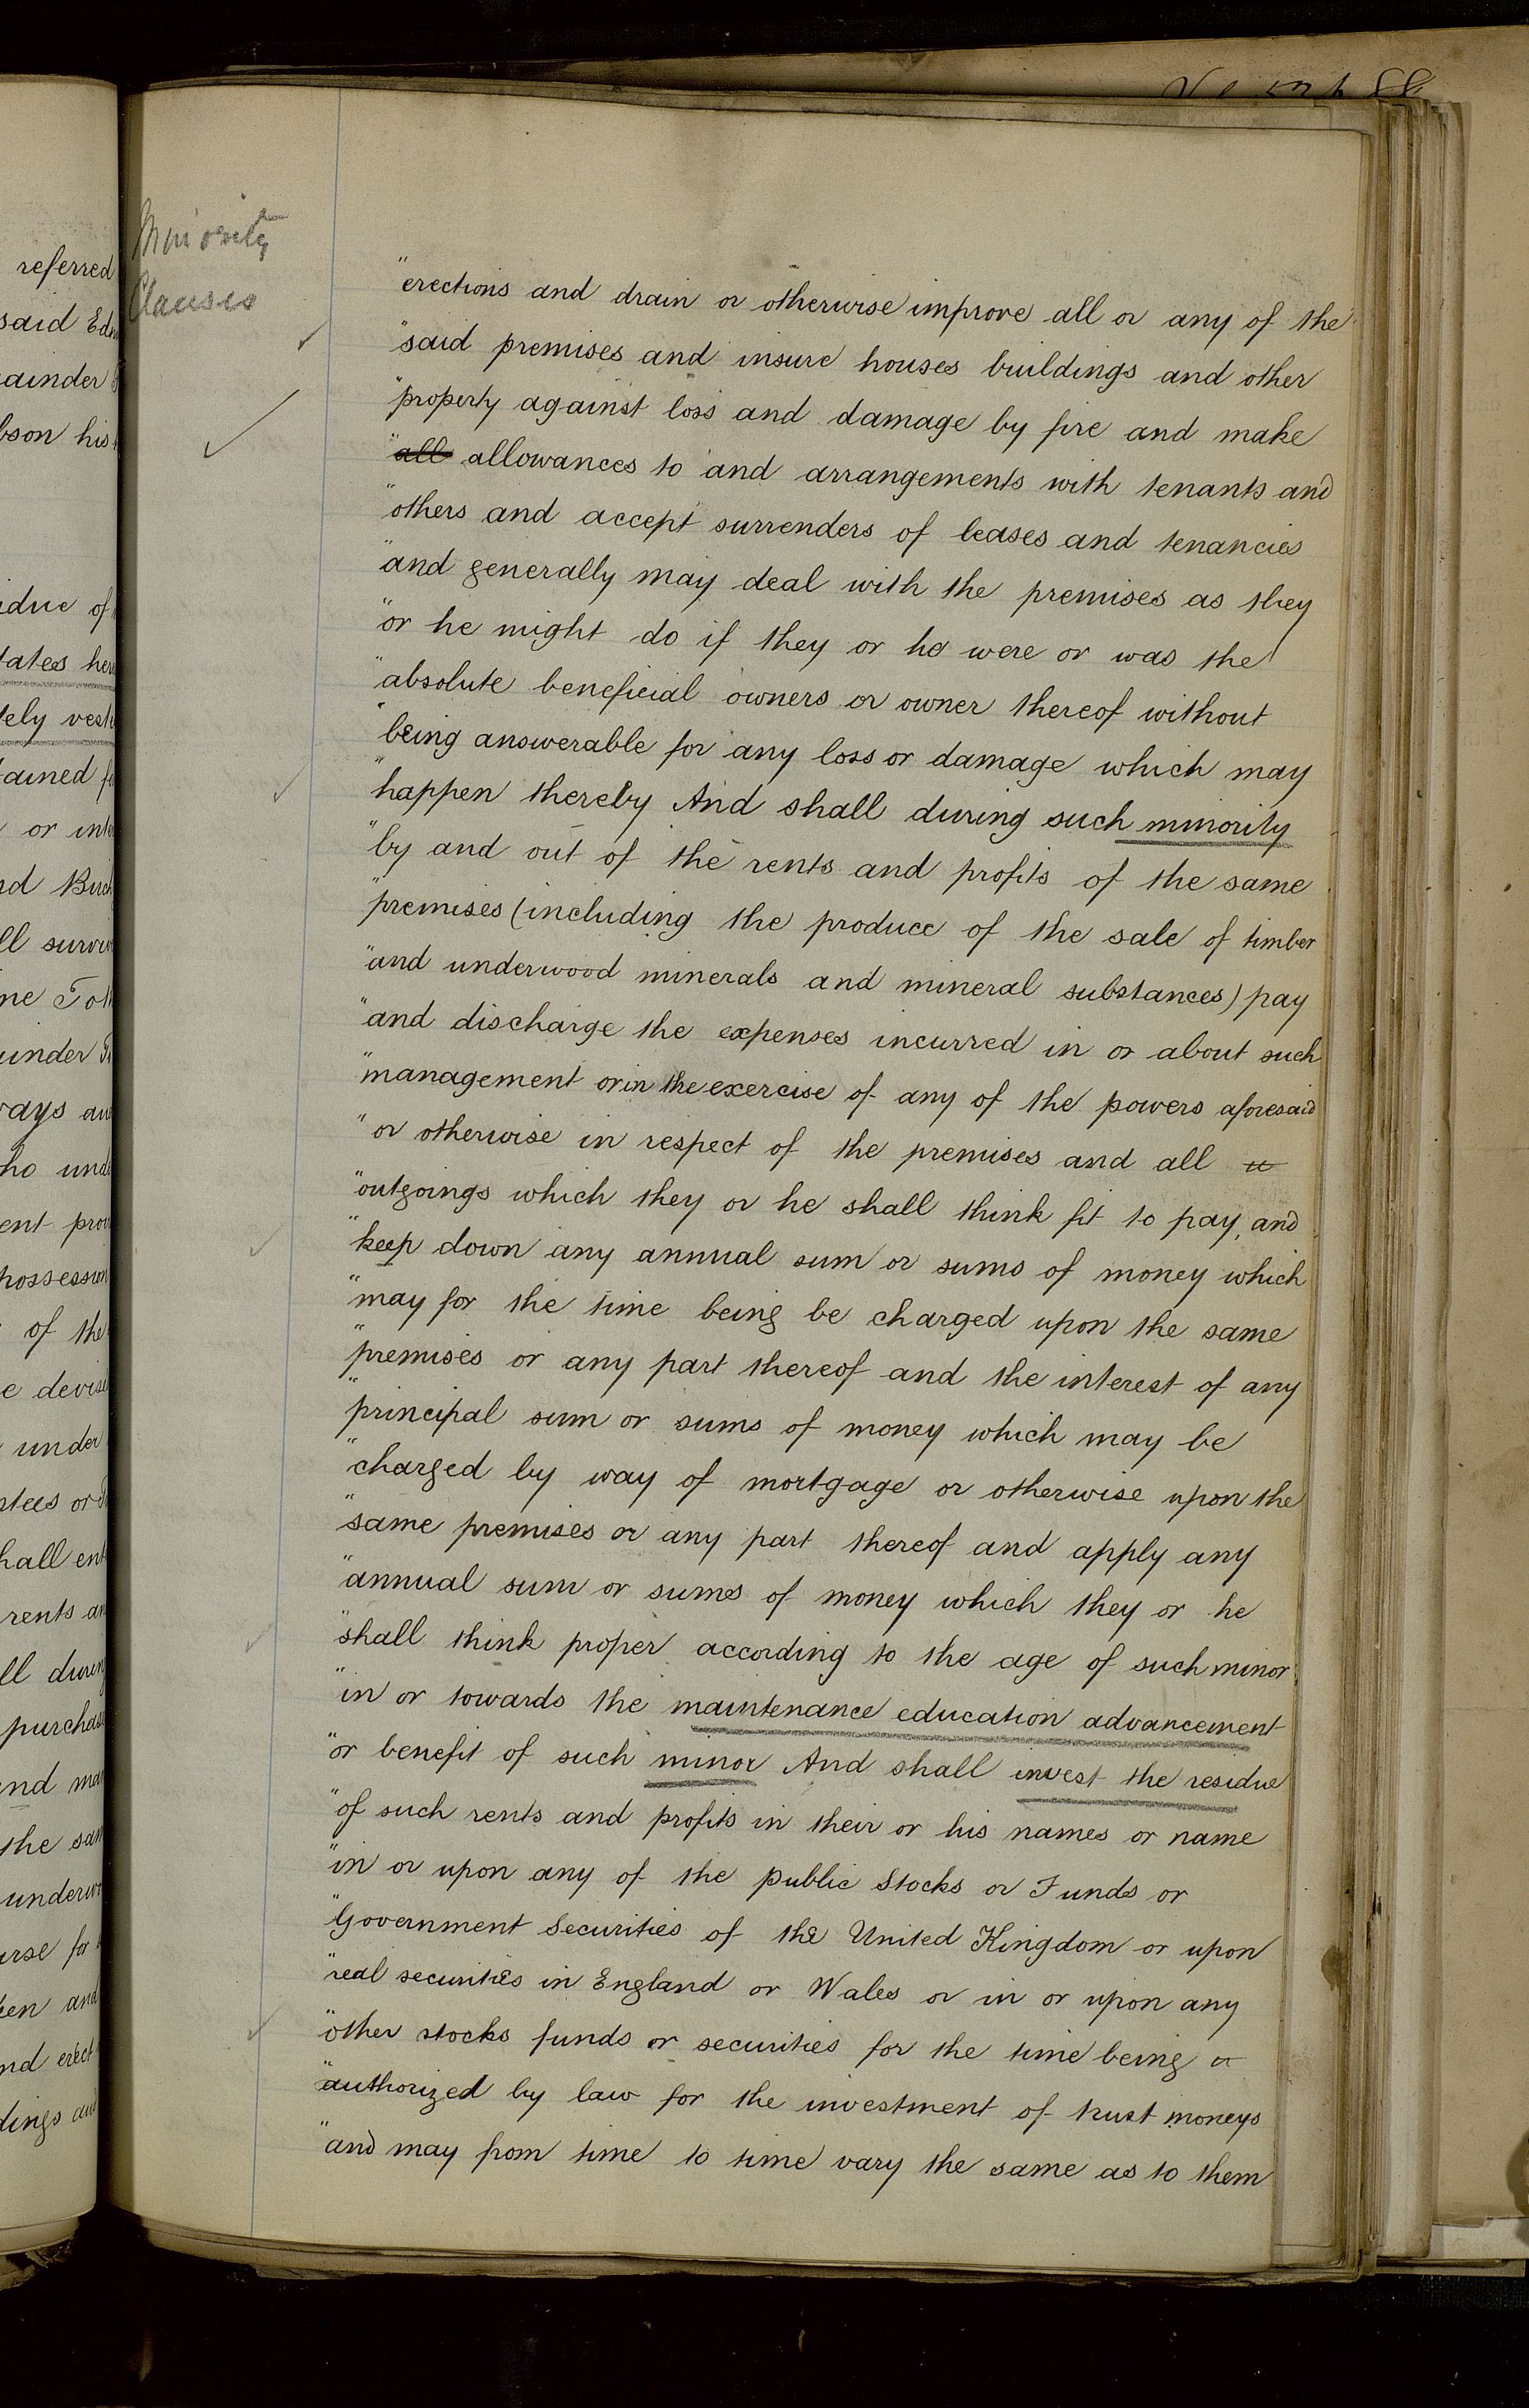 Minority
Clauses
"erections and drain or otherwise improve all or any of the
"said premises and insure houses buildings and other
"property against loss and damage by fire and make
"all allowances to and arrangements with tenants and
"others and accept surrenders of leases and tenancies
"and generally may deal with the premises as they
"or he might do if they or he were or was the
"absolute beneficial owners or owner thereof without
"being answerable for any loss or damage which may
"happen thereby And shall during such minority
"by and out of the rents and profits of the same
"premises (including the produce of the sale of timber
"and underwood minerals and mineral substances) pay
"and discharge the expenses incurred in or about such
"management or in the exercise of any of the powers aforesaid
"or otherwise in respect of the premises and all
"outgoings which they or he shall think fit to pay, and
"keep down any annual sum or sums of money which
"may for the time being be charged upon the same
"premises or any part thereof and the interest of any
"principal sum or sums of money which may be
"charged by way of mortgage or otherwise upon the
"same premises or any part thereof and apply any
"annual sum or sums of money which they or he
"shall think proper according to the age of such minor
"in or towards the maintenance education advancement
"or benefit of such minor And shall invest the residue
"of such rents and profits in their or his names or name
"in or upon any of the public Stocks or Funds or
"Government Securities of the United Kingdom or upon
"real securities in England or Wales or in or upon any
"other stocks funds or securities for the time being
"authorized by law for the investment of trust moneys
"and may from time to time vary the same as to them
referred
said
bson his
of
or
under
of the
under
rents
the